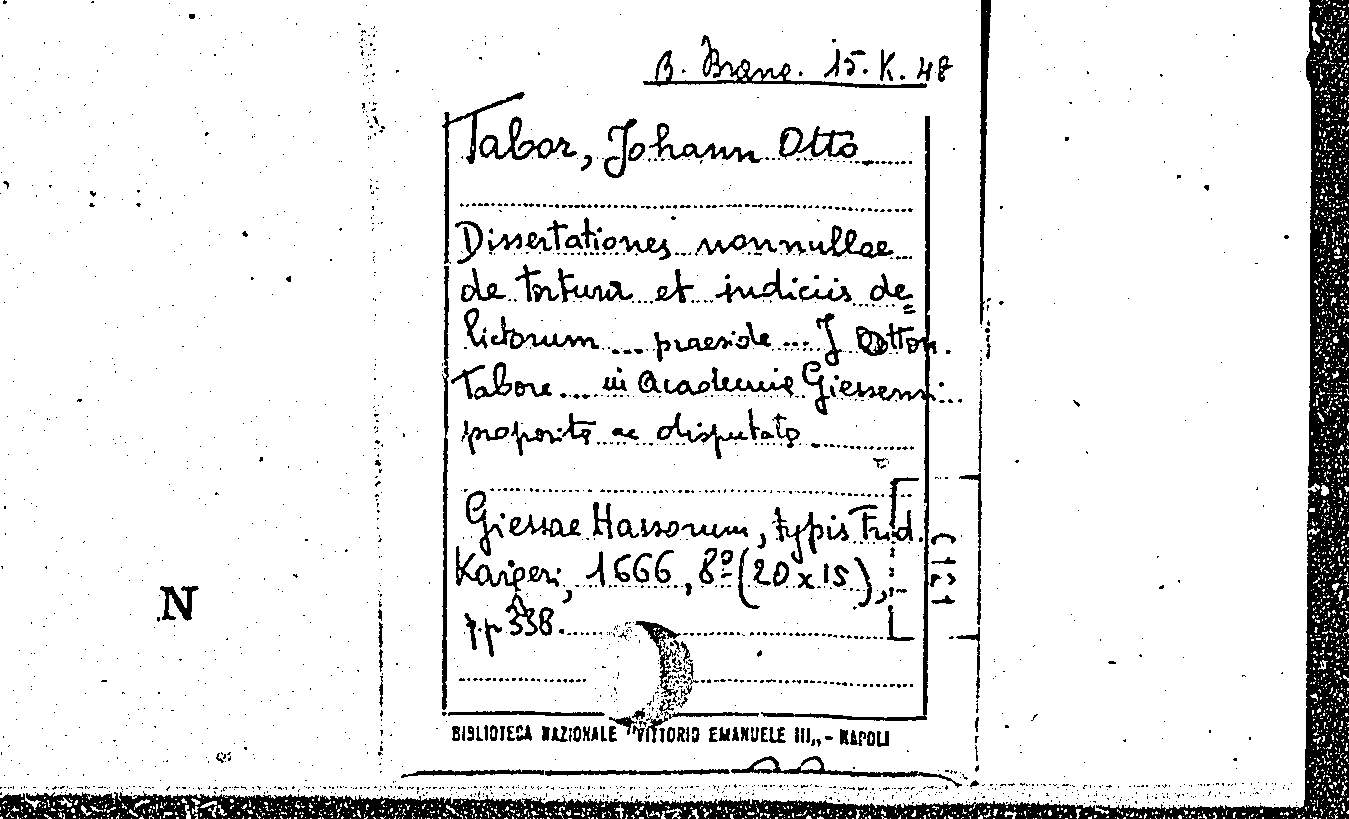 B. Branc. 15. K. 48
Tabor, Johann Otto
Dissertationes nonnullae
de tortura et indiciis de=
lictorum ... praeside ... J Otton.
Tabore ... in Academia Giessensi ...
proposita ac disputata.
Giessae Hassorum, typis Frid.
Kargeri, 1666, 8º (20 x 15),
pp 338.
N
BIBLIOTECA NAZIONALE "VITTORIO EMANUELE III„ - NAPOLI